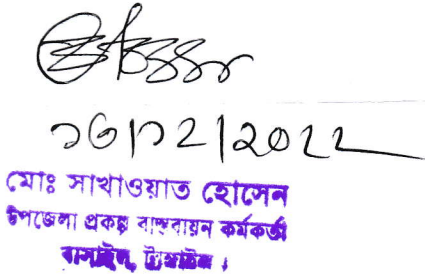 ১৩/১২/২০২২
মোঃ সাখাওয়াত হোসেন
উপজেলা প্রকল্প বাস্তবায়ন কর্মকর্তা
বাসাইল, টাঙ্গাইল।